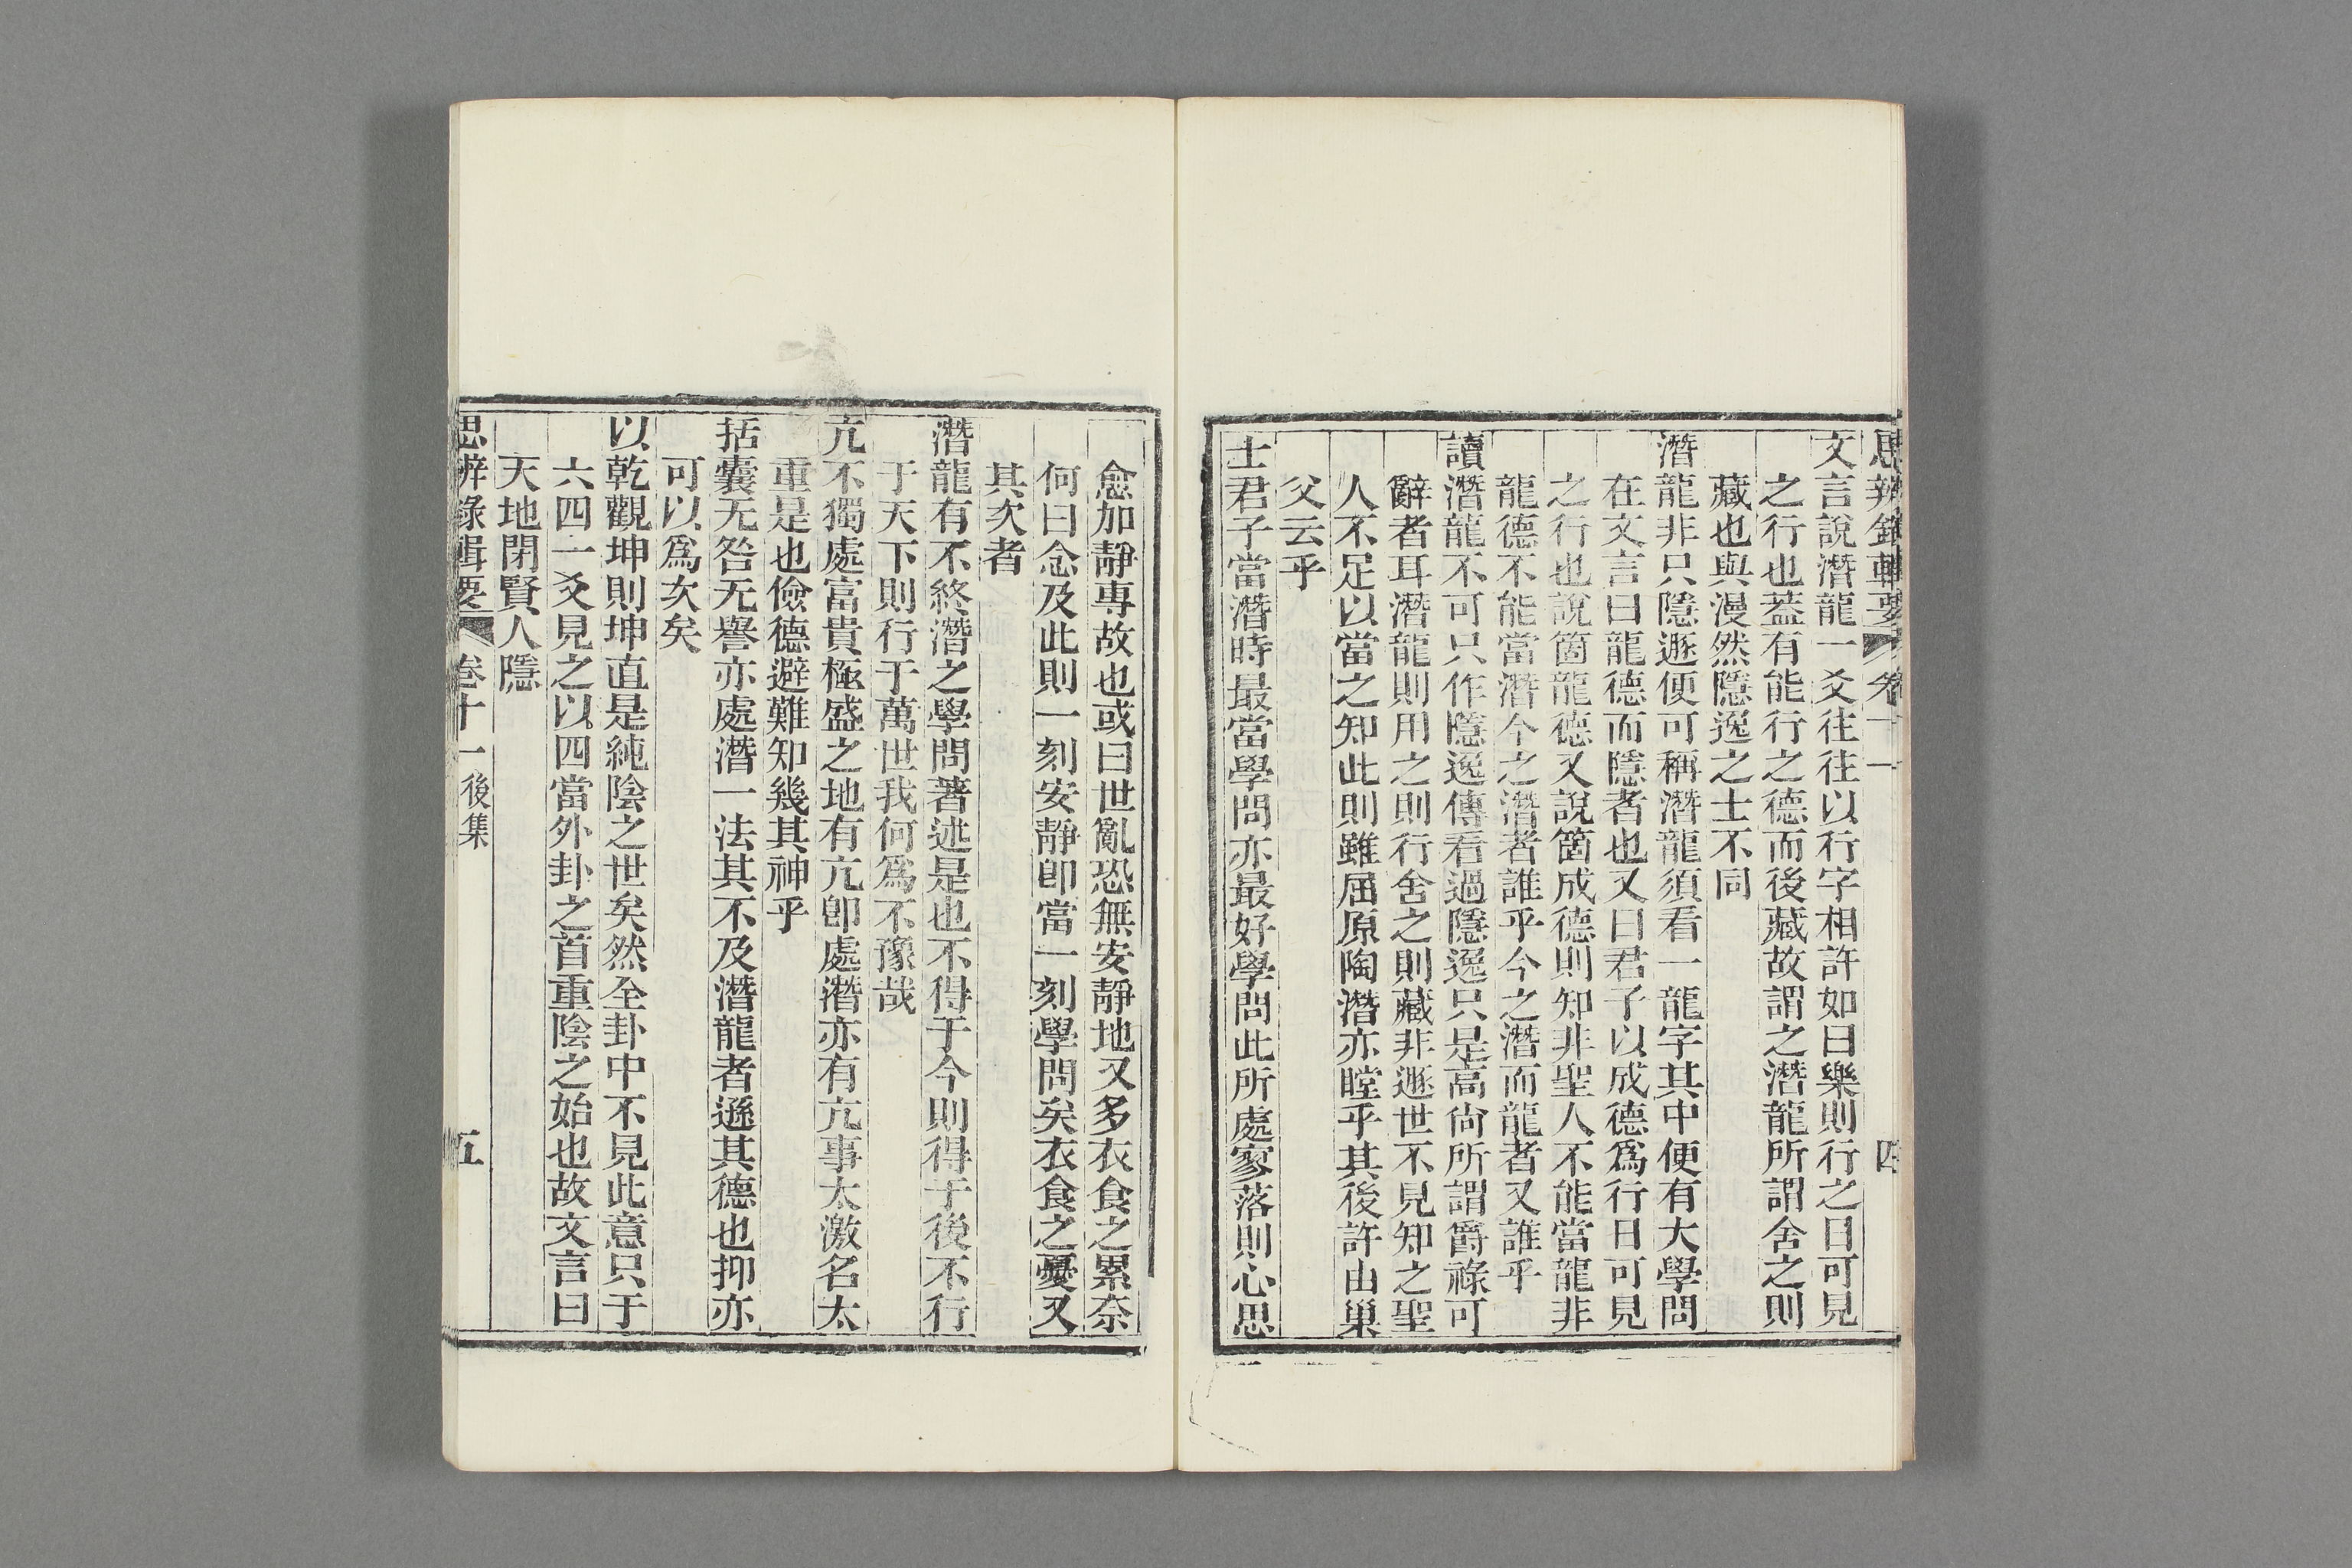 思辨錄輯要 卷十一 四
文言說潛龍一爻往往以行字相許如曰樂則行之日可見
之行也蓋有能行之德而後藏故謂之潛龍所謂舍之則
藏也與漫然隱逸之士不同
潛龍非只隱遯便可稱潛龍須看一龍字其中便有大學問
在文言曰龍德而隱者也又曰君子以成德爲行日可見
之行也說箇龍德又說箇成德則知非聖人不能當龍非
龍德不能當潛今之潛者誰乎今之潛而龍者又誰乎
讀潛龍不可只作隱逸傳看過隱逸只是高尙所謂爵祿可
辭者耳潛龍則用之則行舍之則藏非遯世不見知之聖
人不足以當之知此則雖屈原陶潛亦瞠乎其後許由巢
父云乎
士君子當潛時最當學問亦最好學問此所處寥落則心思
愈加靜專故也或曰世亂恐無安靜地又多衣食之累奈
何曰念及此則一刻安靜卽當一刻學問矣衣食之憂又
其次者
潛龍有不終潛之學問著述是也不得于今則得于後不行
于天下則行于萬世我何爲不豫哉
亢不獨處富貴極盛之地有亢卽處潛亦有亢事太激名太
重是也儉德避難知幾其神乎
括囊无咎无譽亦處潛一法其不及潛龍者遜其德也抑亦
可以爲次矣
以乾觀坤則坤直是純陰之世矣然全卦中不見此意只于
六四一爻見之以四當外卦之首重陰之始也故文言曰
天地閉賢人隱
思辨錄輯要 卷十一 後集 五